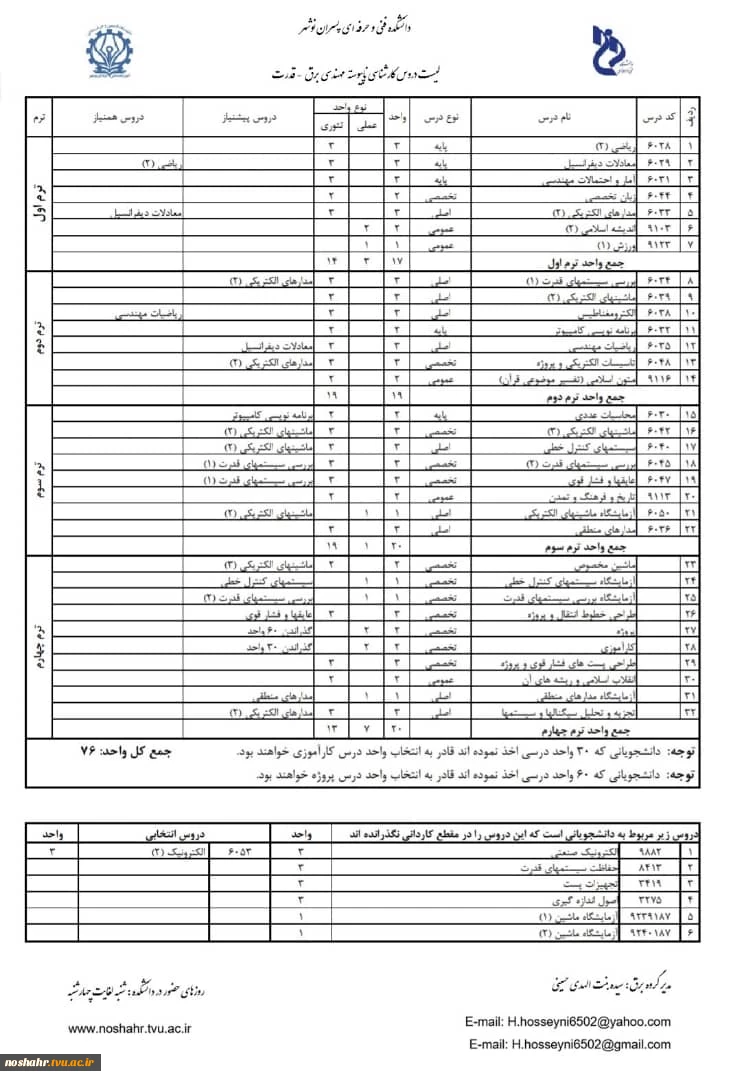 دانشکده فنی و حرفه ای پسران نوشهر
لیست دروس کارشناسی ناپیوسته مهندسی برق - قدرت
ردیف کد درس نام درس نوع درس واحد نوع واحد عملی تئوری دروس پیشنیاز دروس همنیاز ترم
ترم اول
۱ ۶۰۲۸ ریاضی (۲) پایه ۳ ۳
۲ ۶۰۲۹ معادلات دیفرانسیل پایه ۳ ۳ ریاضی (۲)
۳ ۶۰۳۱ آمار و احتمالات مهندسی پایه ۳ ۳
۴ ۶۰۴۴ زبان تخصصی تخصصی ۲ ۲
۵ ۶۰۳۳ مدارهای الکتریکی (۲) اصلی ۳ ۳ معادلات دیفرانسیل
۶ ۹۱۰۳ اندیشه اسلامی (۲) عمومی ۲ ۲
۷ ۹۱۲۳ ورزش (۱) عمومی ۱ ۱
جمع واحد ترم اول ۱۷ ۳ ۱۴
ترم دوم
۸ ۶۰۳۴ بررسی سیستمهای قدرت (۱) اصلی ۳ ۳ مدارهای الکتریکی (۲)
۹ ۶۰۳۹ ماشینهای الکتریکی (۲) اصلی ۳ ۳
۱۰ ۶۰۳۸ الکترومغناطیس اصلی ۳ ۳ ریاضیات مهندسی
۱۱ ۶۰۳۲ برنامه نویسی کامپیوتر پایه ۲ ۲
۱۲ ۶۰۳۵ ریاضیات مهندسی اصلی ۳ ۳ معادلات دیفرانسیل
۱۳ ۶۰۴۸ تاسیسات الکتریکی و پروژه تخصصی ۳ ۳ مدارهای الکتریکی (۲)
۱۴ ۹۱۱۶ متون اسلامی (تفسیر موضوعی قرآن) عمومی ۲ ۲
جمع واحد ترم دوم ۱۹ ۱۹
ترم سوم
۱۵ ۶۰۳۰ محاسبات عددی پایه ۲ ۲ برنامه نویسی کامپیوتر
۱۶ ۶۰۴۲ ماشینهای الکتریکی (۳) تخصصی ۳ ۳ ماشینهای الکتریکی (۲)
۱۷ ۶۰۴۰ سیستمهای کنترل خطی اصلی ۳ ۳ ماشینهای الکتریکی (۲)
۱۸ ۶۰۴۵ بررسی سیستمهای قدرت (۲) تخصصی ۳ ۳ بررسی سیستمهای قدرت (۱)
۱۹ ۶۰۴۷ عایقها و فشار قوی تخصصی ۳ ۳ بررسی سیستمهای قدرت (۱)
۲۰ ۹۱۱۳ تاریخ و فرهنگ و تمدن عمومی ۲ ۲
۲۱ ۶۰۵۰ آزمایشگاه ماشینهای الکتریکی اصلی ۱ ۱ ماشینهای الکتریکی (۲)
۲۲ ۶۰۳۶ مدارهای منطقی اصلی ۳ ۳
جمع واحد ترم سوم ۲۰ ۱ ۱۹
ترم چهارم
۲۳ ماشین مخصوص تخصصی ۲ ۲ ماشینهای الکتریکی (۳)
۲۴ آزمایشگاه سیستمهای کنترل خطی تخصصی ۱ ۱ سیستمهای کنترل خطی
۲۵ آزمایشگاه بررسی سیستمهای قدرت تخصصی ۱ ۱ بررسی سیستمهای قدرت (۲)
۲۶ طراحی خطوط انتقال و پروژه تخصصی ۳ ۳ عایقها و فشار قوی
۲۷ پروژه تخصصی ۲ ۲ گذراندن ۶۰ واحد
۲۸ کارآموزی تخصصی ۲ ۲ گذراندن ۳۰ واحد
۲۹ طراحی پست های فشار قوی و پروژه تخصصی ۳ ۳
۳۰ انقلاب اسلامی و ریشه های آن عمومی ۲ ۲
۳۱ آزمایشگاه مدارهای منطقی اصلی ۱ ۱ مدارهای منطقی
۳۲ تجزیه و تحلیل سیگنالها و سیستمها اصلی ۳ ۳ مدارهای الکتریکی (۲)
جمع واحد ترم چهارم ۲۰ ۷ ۱۳
توجه: دانشجویانی که ۳۰ واحد درسی اخذ نموده اند قادر به انتخاب واحد درس کارآموزی خواهند بود. جمع کل واحد: ۷۶
توجه: دانشجویانی که ۶۰ واحد درسی اخذ نموده اند قادر به انتخاب واحد درس پروژه خواهند بود.
دروس زیر مربوط به دانشجویانی است که این دروس را در مقطع کاردانی نگذرانده اند واحد دروس انتخابی واحد
۱ ۹۸۸۲ الکترونیک صنعتی ۳ ۶۰۵۳ الکترونیک (۲) ۳
۲ ۸۴۱۳ حفاظت سیستمهای قدرت ۳
۳ ۳۴۱۹ تجهیزات پست ۳
۴ ۳۲۷۵ اصول اندازه گیری ۳
۵ ۹۲۳۹۱۸۷ آزمایشگاه ماشین (۱) ۱
۶ ۹۲۴۰۱۸۷ آزمایشگاه ماشین (۲) ۱
مدیر گروه برق: سیده بنت الهدی حسینی
روزهای حضور در دانشکده: شنبه لغایت چهارشنبه
E-mail: H.hosseyni6502@yahoo.com
www.noshahr.tvu.ac.ir
E-mail: H.hosseyni6502@gmail.com
noshahr.tvu.ac.ir